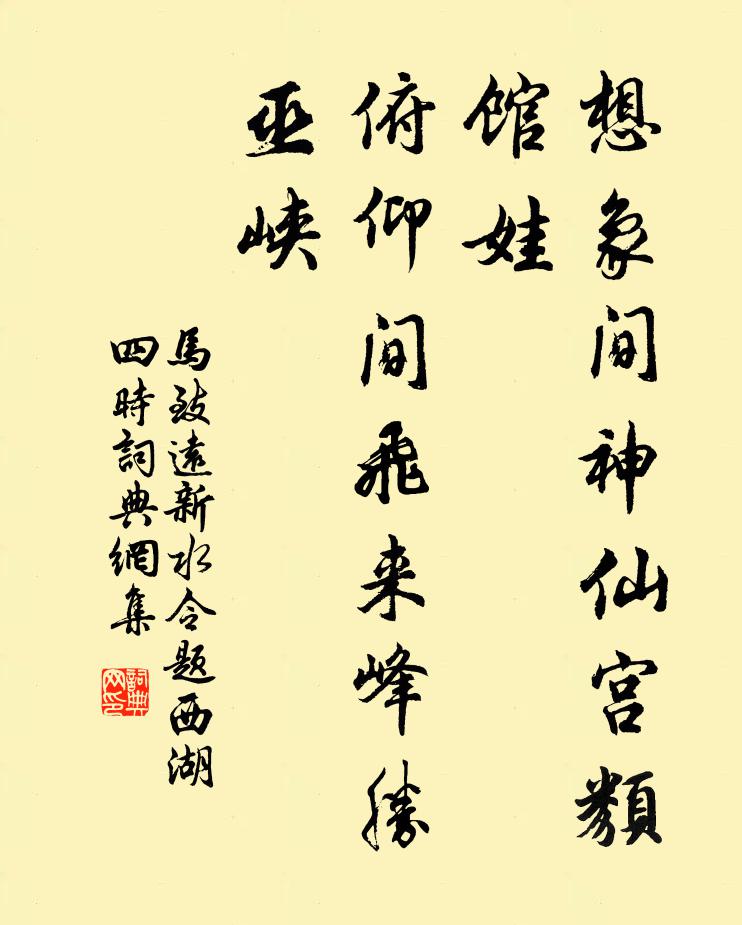 想象间神仙宫類
馆娃
俯仰间飛来峰勝
巫峡
馬致遠新水令題西湖
四時詞典網集
詞典
网印